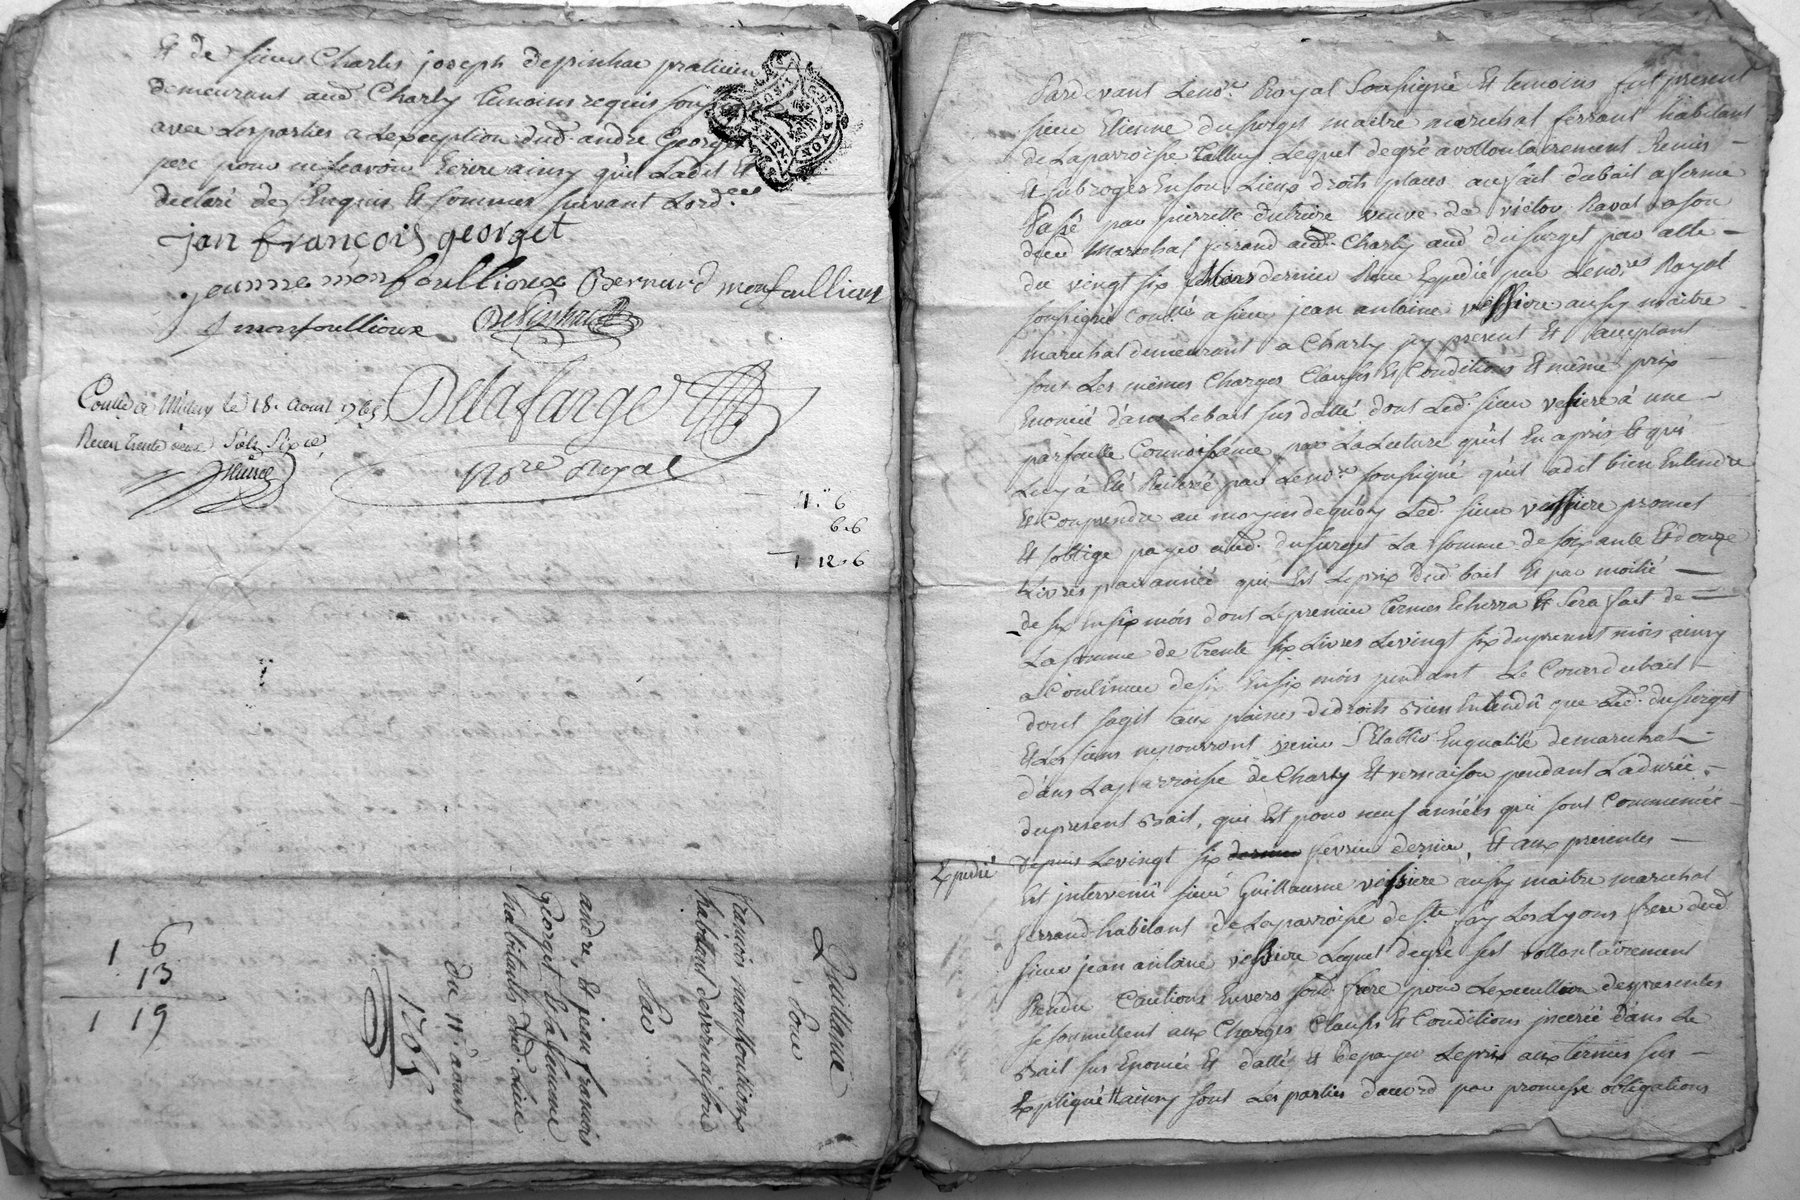 Et de sieur Charles joseph Depinhac praticien
demeurant aud. Charly temoins requis sous
avec Les parties a Lexception dud. andré George
pere pour ne scavoir Ecrire ainsy qu'il La dit Et
declaré de Enquis Et sommer suivant Lord.ce
jan françois georget
jeanne monfoullioux Bernard monfoullioux
monfoullioux Depinhac
Conllé à Millery le 18. Aout 1765
Recu trente deux sols six d
Delafarge
No.re Royal
11. 6
6. 6
1 12. 6
1 6
13
1 19
Quittance
Pour
françois monfoullioux
habittant de vernaison
Par
andré, Et jean françois
George Et sa femme
habitants dud. Lieu
du 11.e aoust
1765
Pardevant Le no.re Royal Soussigné Et temoins fut present
sieur Etienne dusurget maitre marechal ferrant habitant
de La parroisse Talluy Lequel de gré a vollontairement Remis
Et subrogés En son Lieux droits places au fait du bail a ferme
Passé par pierrette dutrière veuve de victor Raval a son
dieu marechal ferrand aud. Charly aud. dusurget par acte
du vingt six Mars dernier Reçu Expedié par Le no.re Royal
soussigné Conllé a sieur jean antoine vessiere aussy maitre
marechal demeurant a Charly icy present Et acceptant
sous Les mêmes Charges Clauses Et Conditions Et même prix
Enoncié dans Le bail sus datté dont Led. sieur vessiere à une
parfaitte Connoissance par La Lecture qu'il En a pris Et qui
Luy à Eté Reiterée par Le no.re soussigné qu'il a dit bien Entendre
Et Comprendre au moyen de quoy Led. sieur vessiere promet
Et soblige payer aud. dusurget La somme de soixante Et douze
Livres par année qui Est Le prix dud. bail Et par moitié
de six En six mois dont Le premier termes Echerra Et sera fait de
La somme de trente six Livres Le vingt six du present mois ainsy
a Continuer de six En six mois pendant Le Cours du bail
dont sagit aux peines de droits Bien Entendû que Led. dusurget
Et Les siens ne pourront venir S'Etablir En qualité de marechal
dans La parroisse de Charly Et vernaison pendant La durée
du present Bail, qui Est pour neuf années qui sont Commencée
Expedié
Depuis Le vingt six fevrier dernier, Et aux presentes
Est intervenû sieur Guillaume vessiere aussy maitre marechal
ferrand habitant de La parroisse de Ste. foy Les Lyons frere dud.
sieur jean antoine vessiere Lequel de gré sest vollontairement
Rendu Cautions Envers sond. frere pour Lexecution des presentes
se soumettent aux Charges Clauses Et Conditions inserée dans Le
Bail sus Enoncé Et datté Et de payer Le prix aux termes sus
Expliqué Et ainsy sont Les parties d'acord par promesse obligations